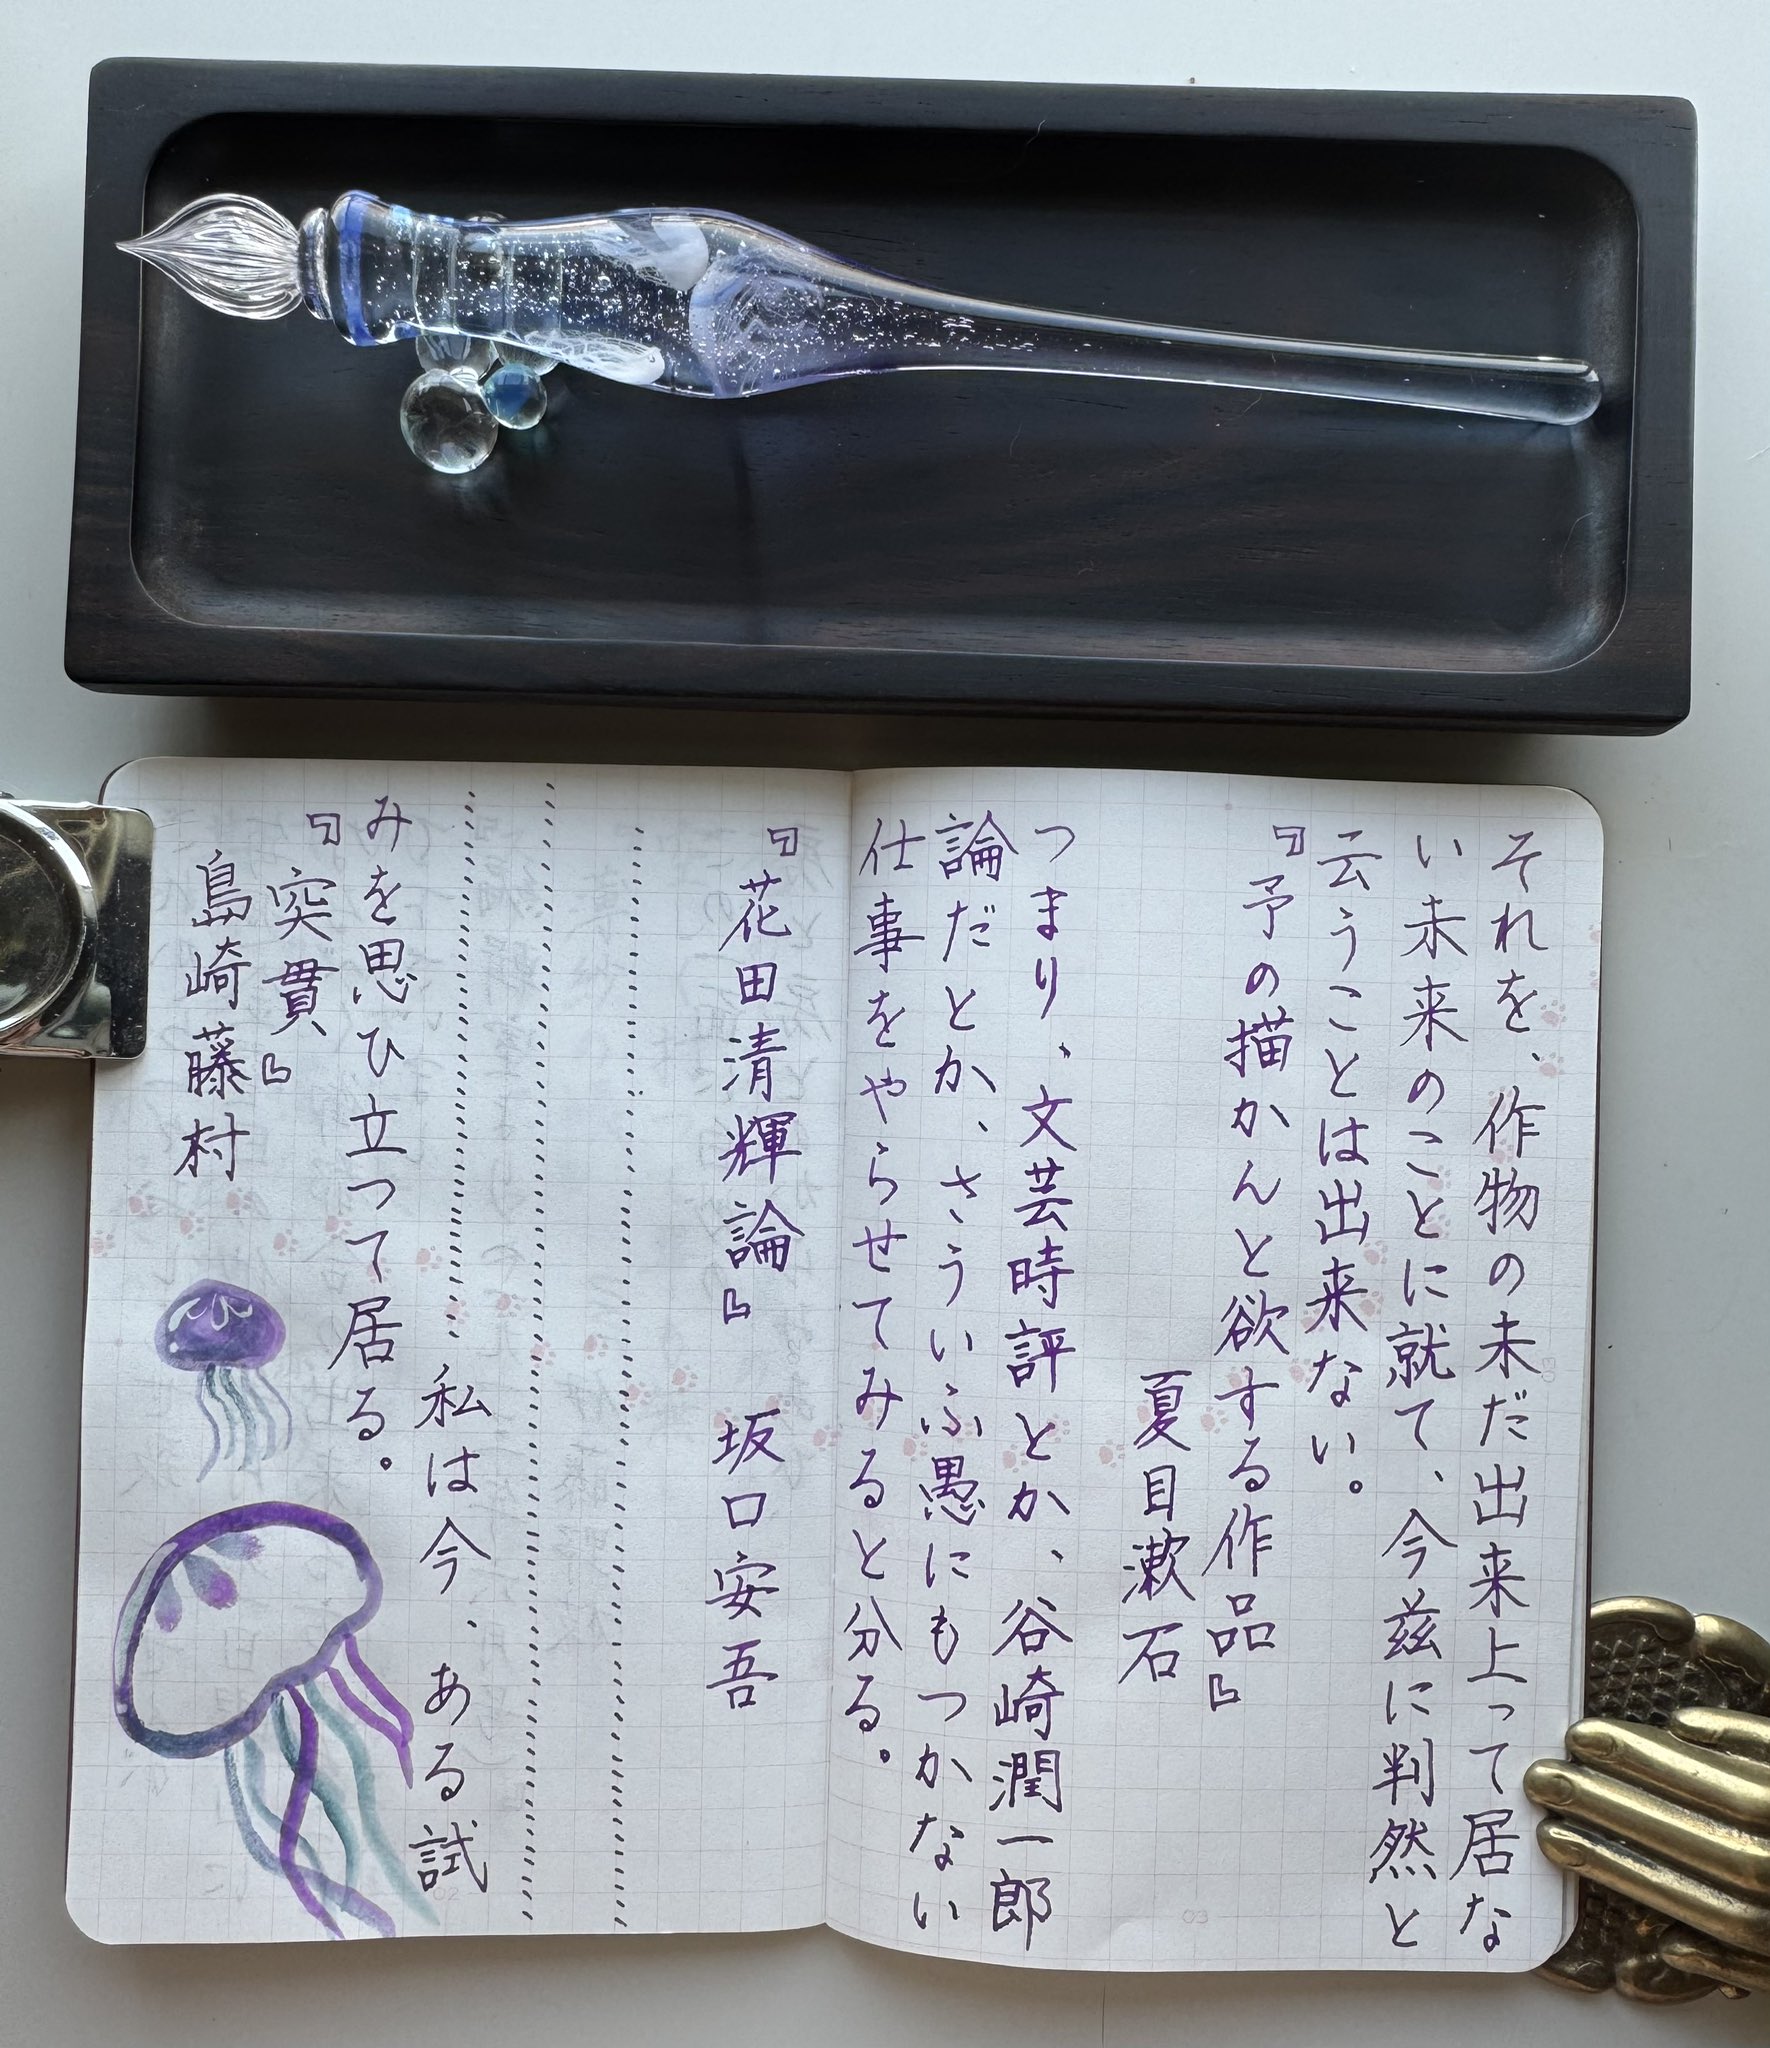 それを、作物の未だ出来上って居な
い未来のことに就て、今茲に判然と
云うことは出来ない。
『予の描かんと欲する作品』
夏目漱石
つまり、文芸時評とか、谷崎潤一郎
論だとか、さういふ愚にもつかない
仕事をやらせてみると分る。
『花田清輝論』 坂口安吾
私は今、ある試
みを思ひ立って居る。
『突貫』
島崎藤村
02
03